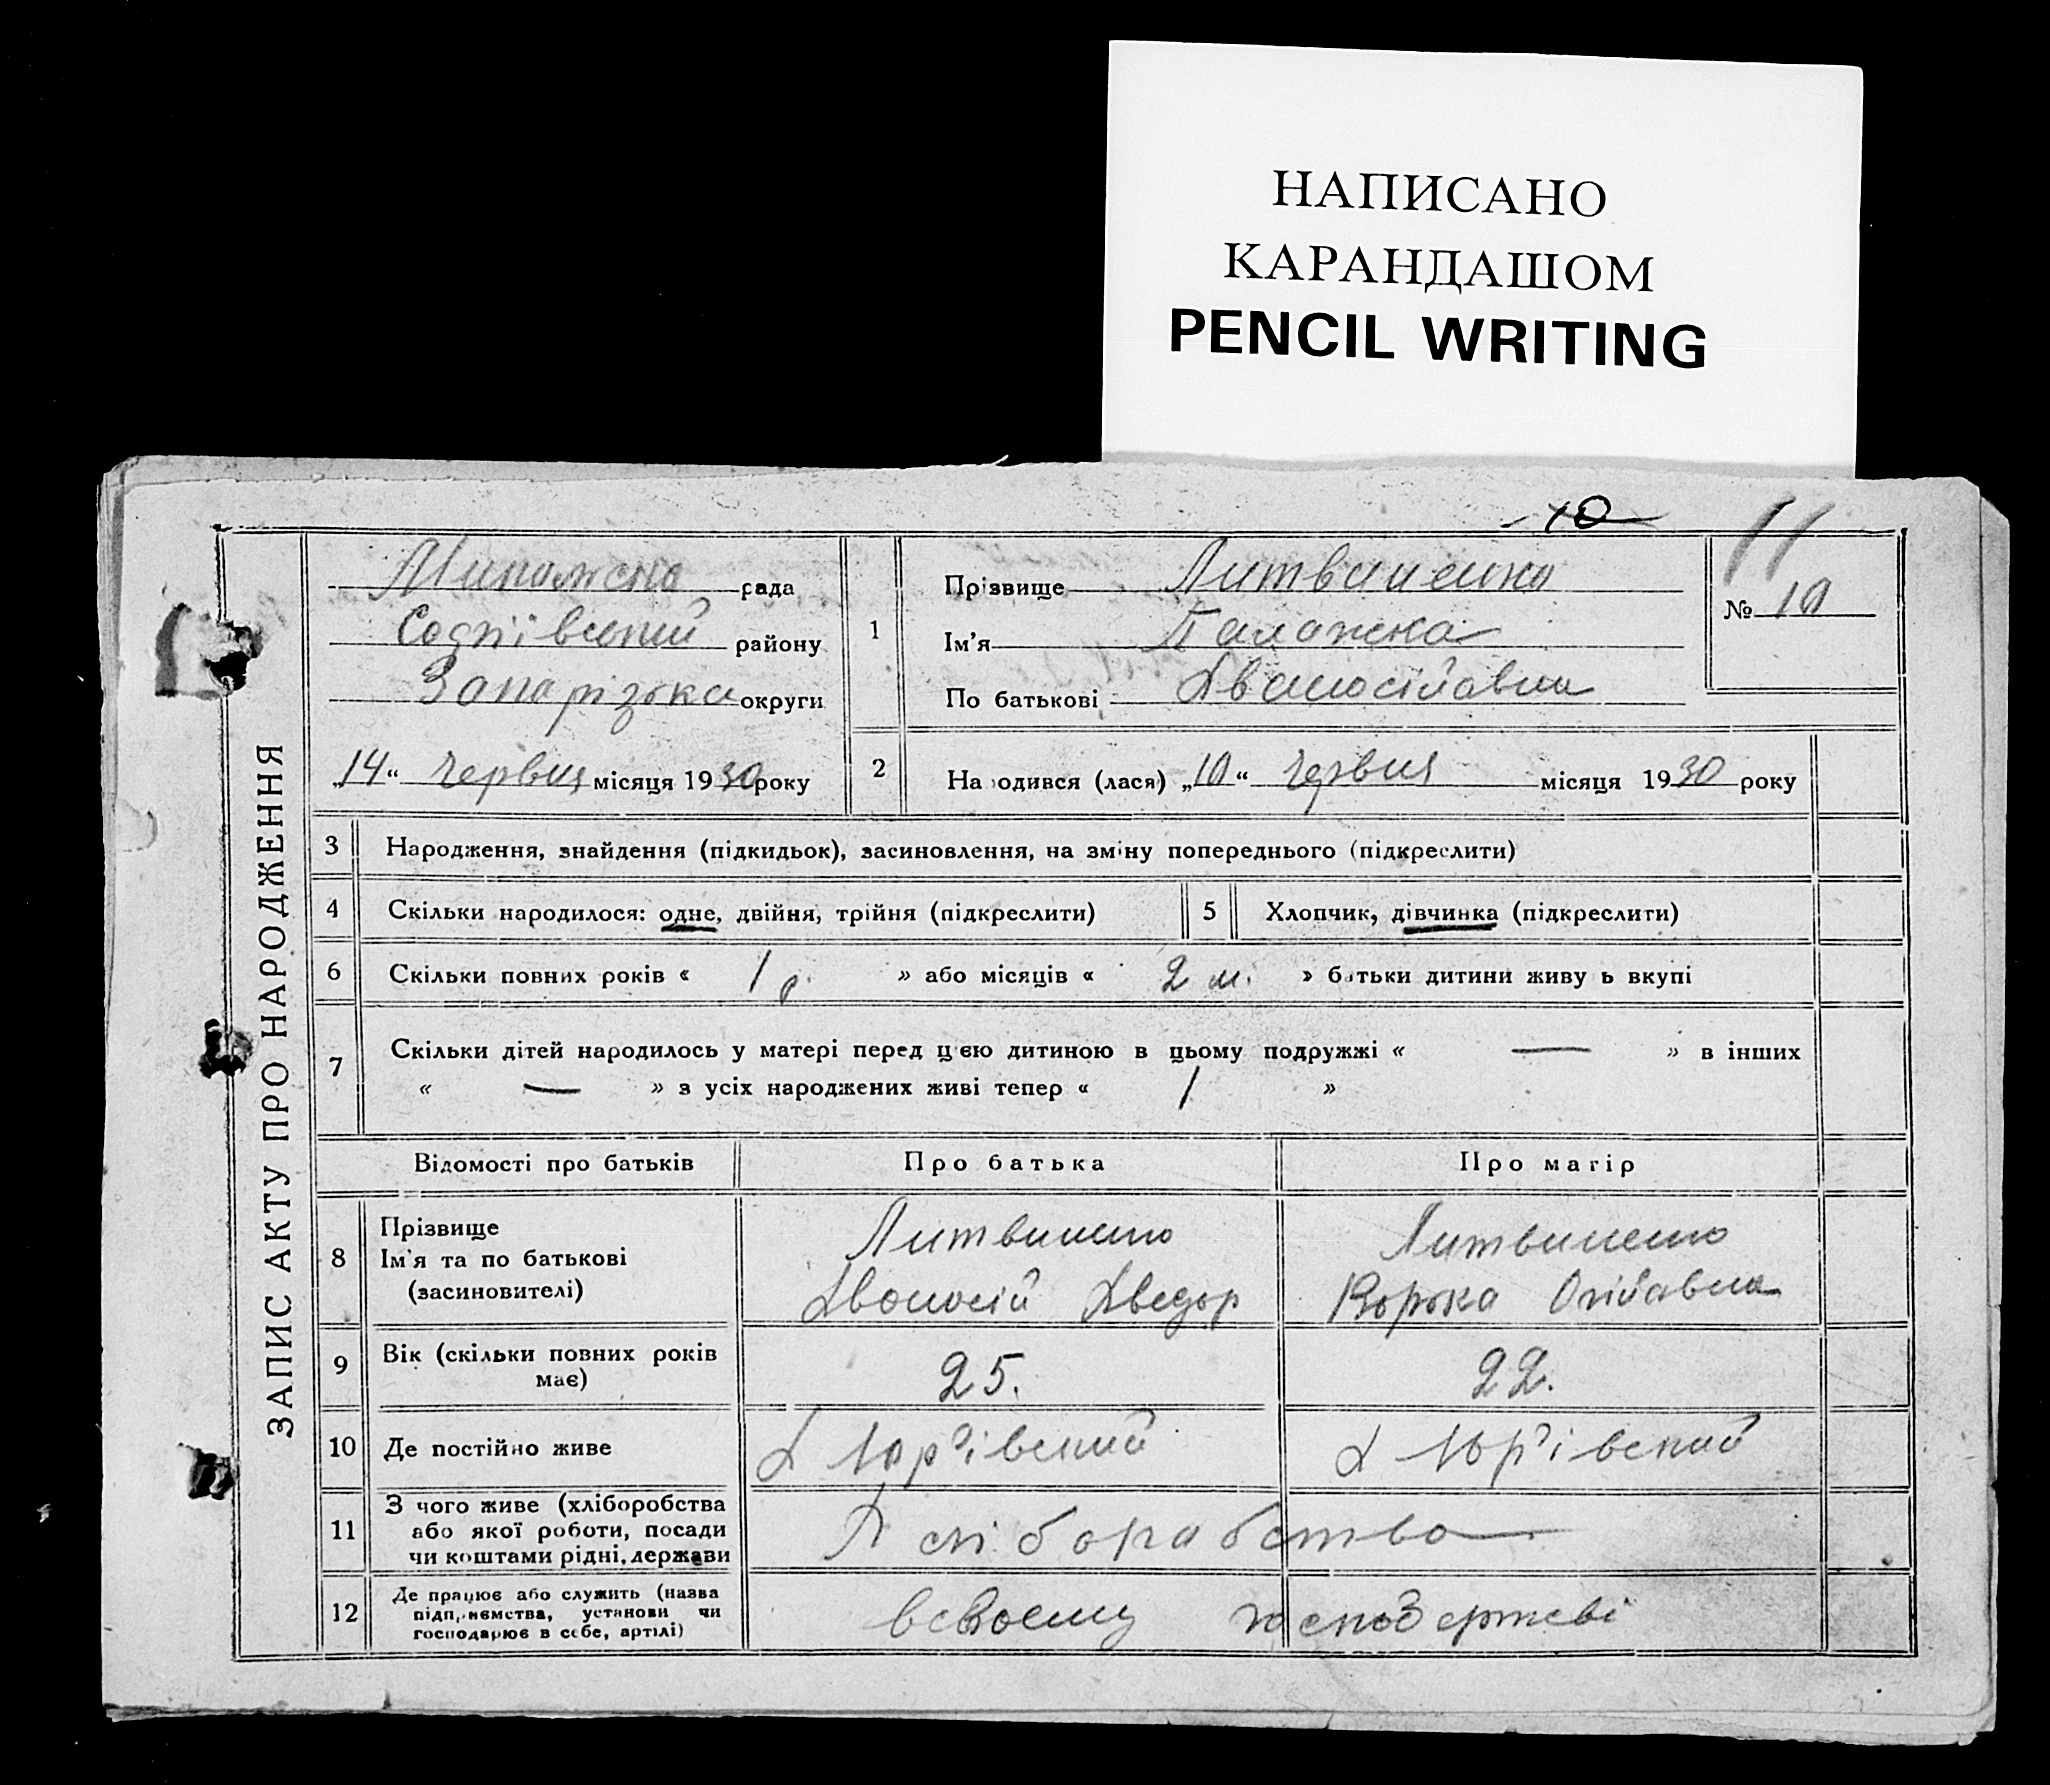 НАПИСАНО
КАРАНДАШОМ
PENCIL WRITING
10
11
ЗАПИС АКТУ ПРО НАРОДЖЕННЯ
рада
району
Запарізька округи
„14“ Червня місяця 1930 року
1
Прізвище Литвиненко
Ім'я Палажка
По батькові
№ 10
2
Народився (лася) „10“ Червня місяця 1930 року
3 Народження, знайдення (підкидьок), засиновлення, на зміну попереднього (підкреслити)
4 Скільки народилося: одне, двійня, трійня (підкреслити)
5 Хлопчик, дівчинка (підкреслити)
6 Скільки повних років « 1 р. » або місяців « 2 м. » батьки дитини живуть вкупі
7 Скільки дітей народилось у матері перед цією дитиною в цьому подружжі « — » в інших
« — » з усіх народжених живі тепер « 1 »
Відомості про батьків Про батька Про матір
8 Прізвище
Ім'я та по батькові
(засновителі)
Литвиненко
Литвиненко
9 Вік (скільки повних років
має)
25. 22.
10 Де постійно живе Юр'івский Юр'івский
11 З чого живе (хліборобства
або якої роботи, посади
чи коштами рідні, держави
12 Де працює або служить (назва
підприємства, установи чи
господарює в себе, артілі)
всвоему